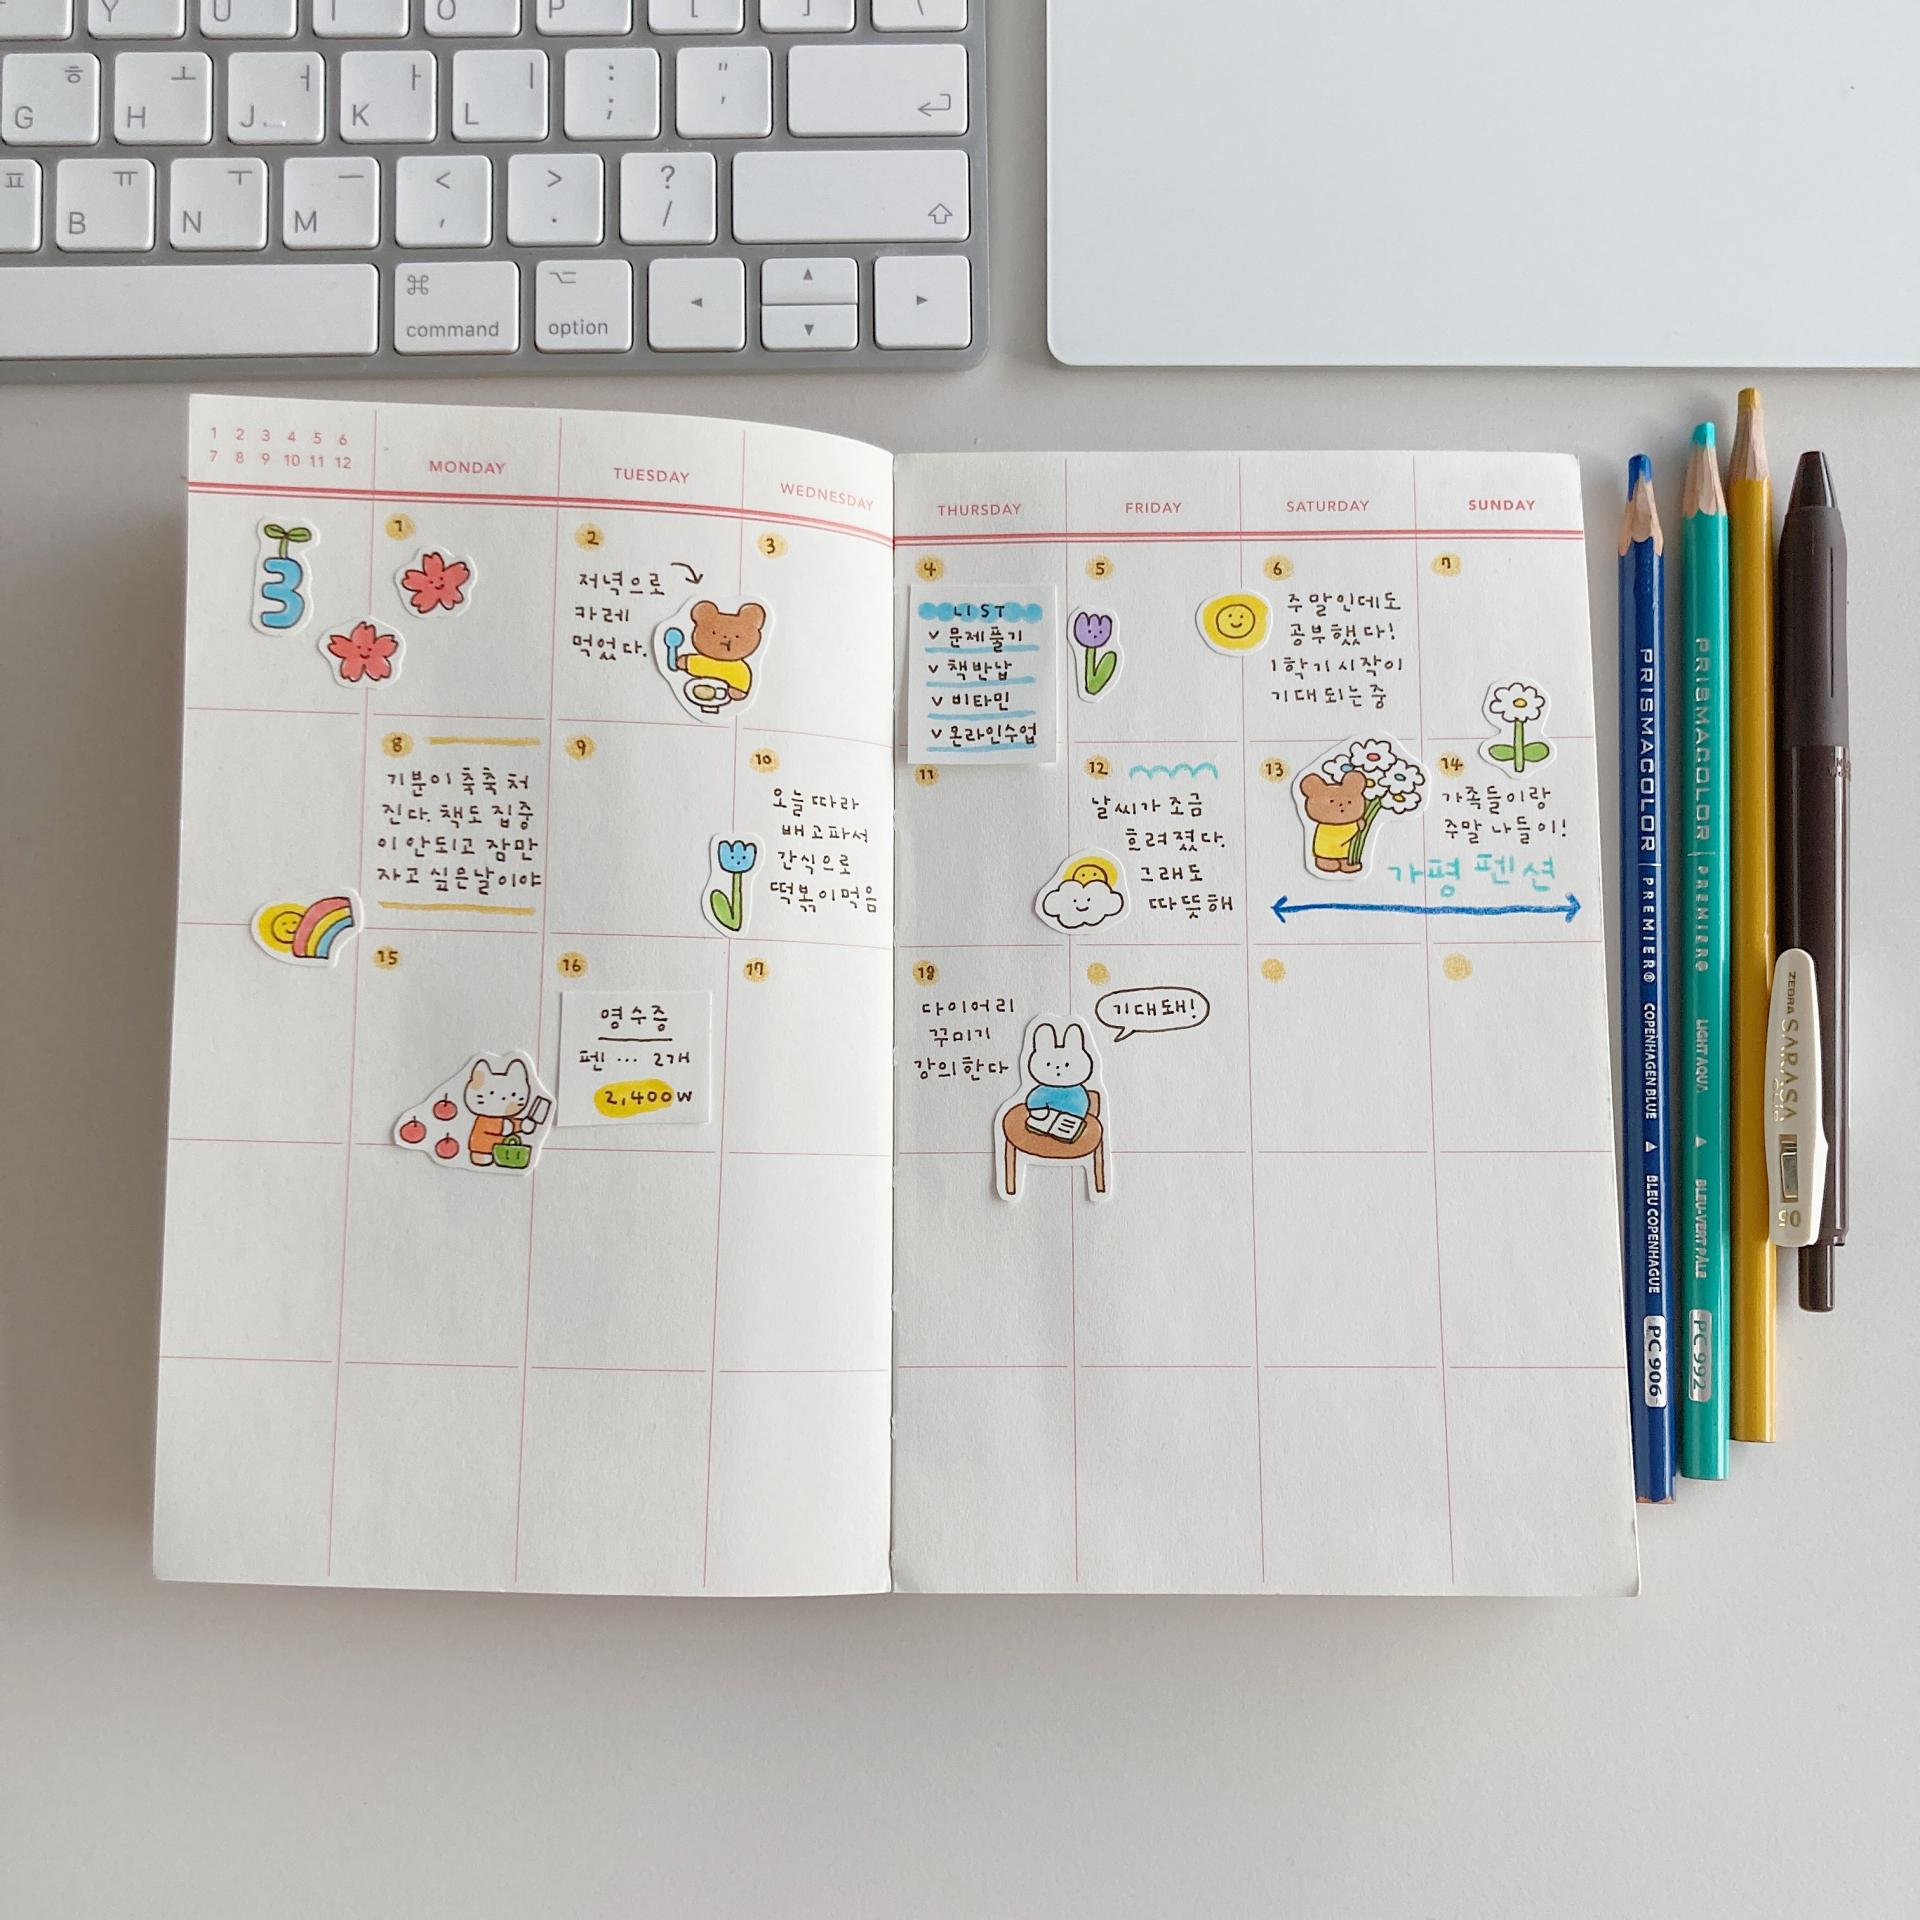 Y U I O P [ ] \
ㅎ ㅗ ㅓ ㅏ ㅣ : "
G H J K L ; '
ㅍ ㅠ ㅜ ㅡ < > ?
B N M , . /
⌘ ⌥
command option
1 2 3 4 5 6
7 8 9 10 11 12
MONDAY
TUESDAY
WEDNESDAY
THURSDAY
FRIDAY
SATURDAY
SUNDAY
3
1
2
저녁으로
카레
먹었다.
3
4
LIST
v 문제풀기
v 책반납
v 비타민
v 온라인수업
5
6
주말인데도
공부했다!
1학기 시작이
기대되는중
7
8
기분이 축축 처
진다. 책도 집중
이 안되고 잠만
자고 싶은날이야
9
10
오늘따라
배고파서
간식으로
떡볶이먹음
11
12
날씨가 조금
흐려졌다.
그래도
따뜻해
13
14
가족들이랑
주말 나들이!
가평 펜션
15
16
영수증
펜 ... 2개
2,400w
17
18
다이어리
꾸미기
강의한다
기대돼!
PRISMACOLOR | PREMIER® COPENHAGEN BLUE ▲ BLEU COPENHAGUE PC 906
PRISMACOLOR | PREMIER® LIGHT AQUA ▲ BLEU-VERT PÂLE PC 992
ZEBRA SARASA
05